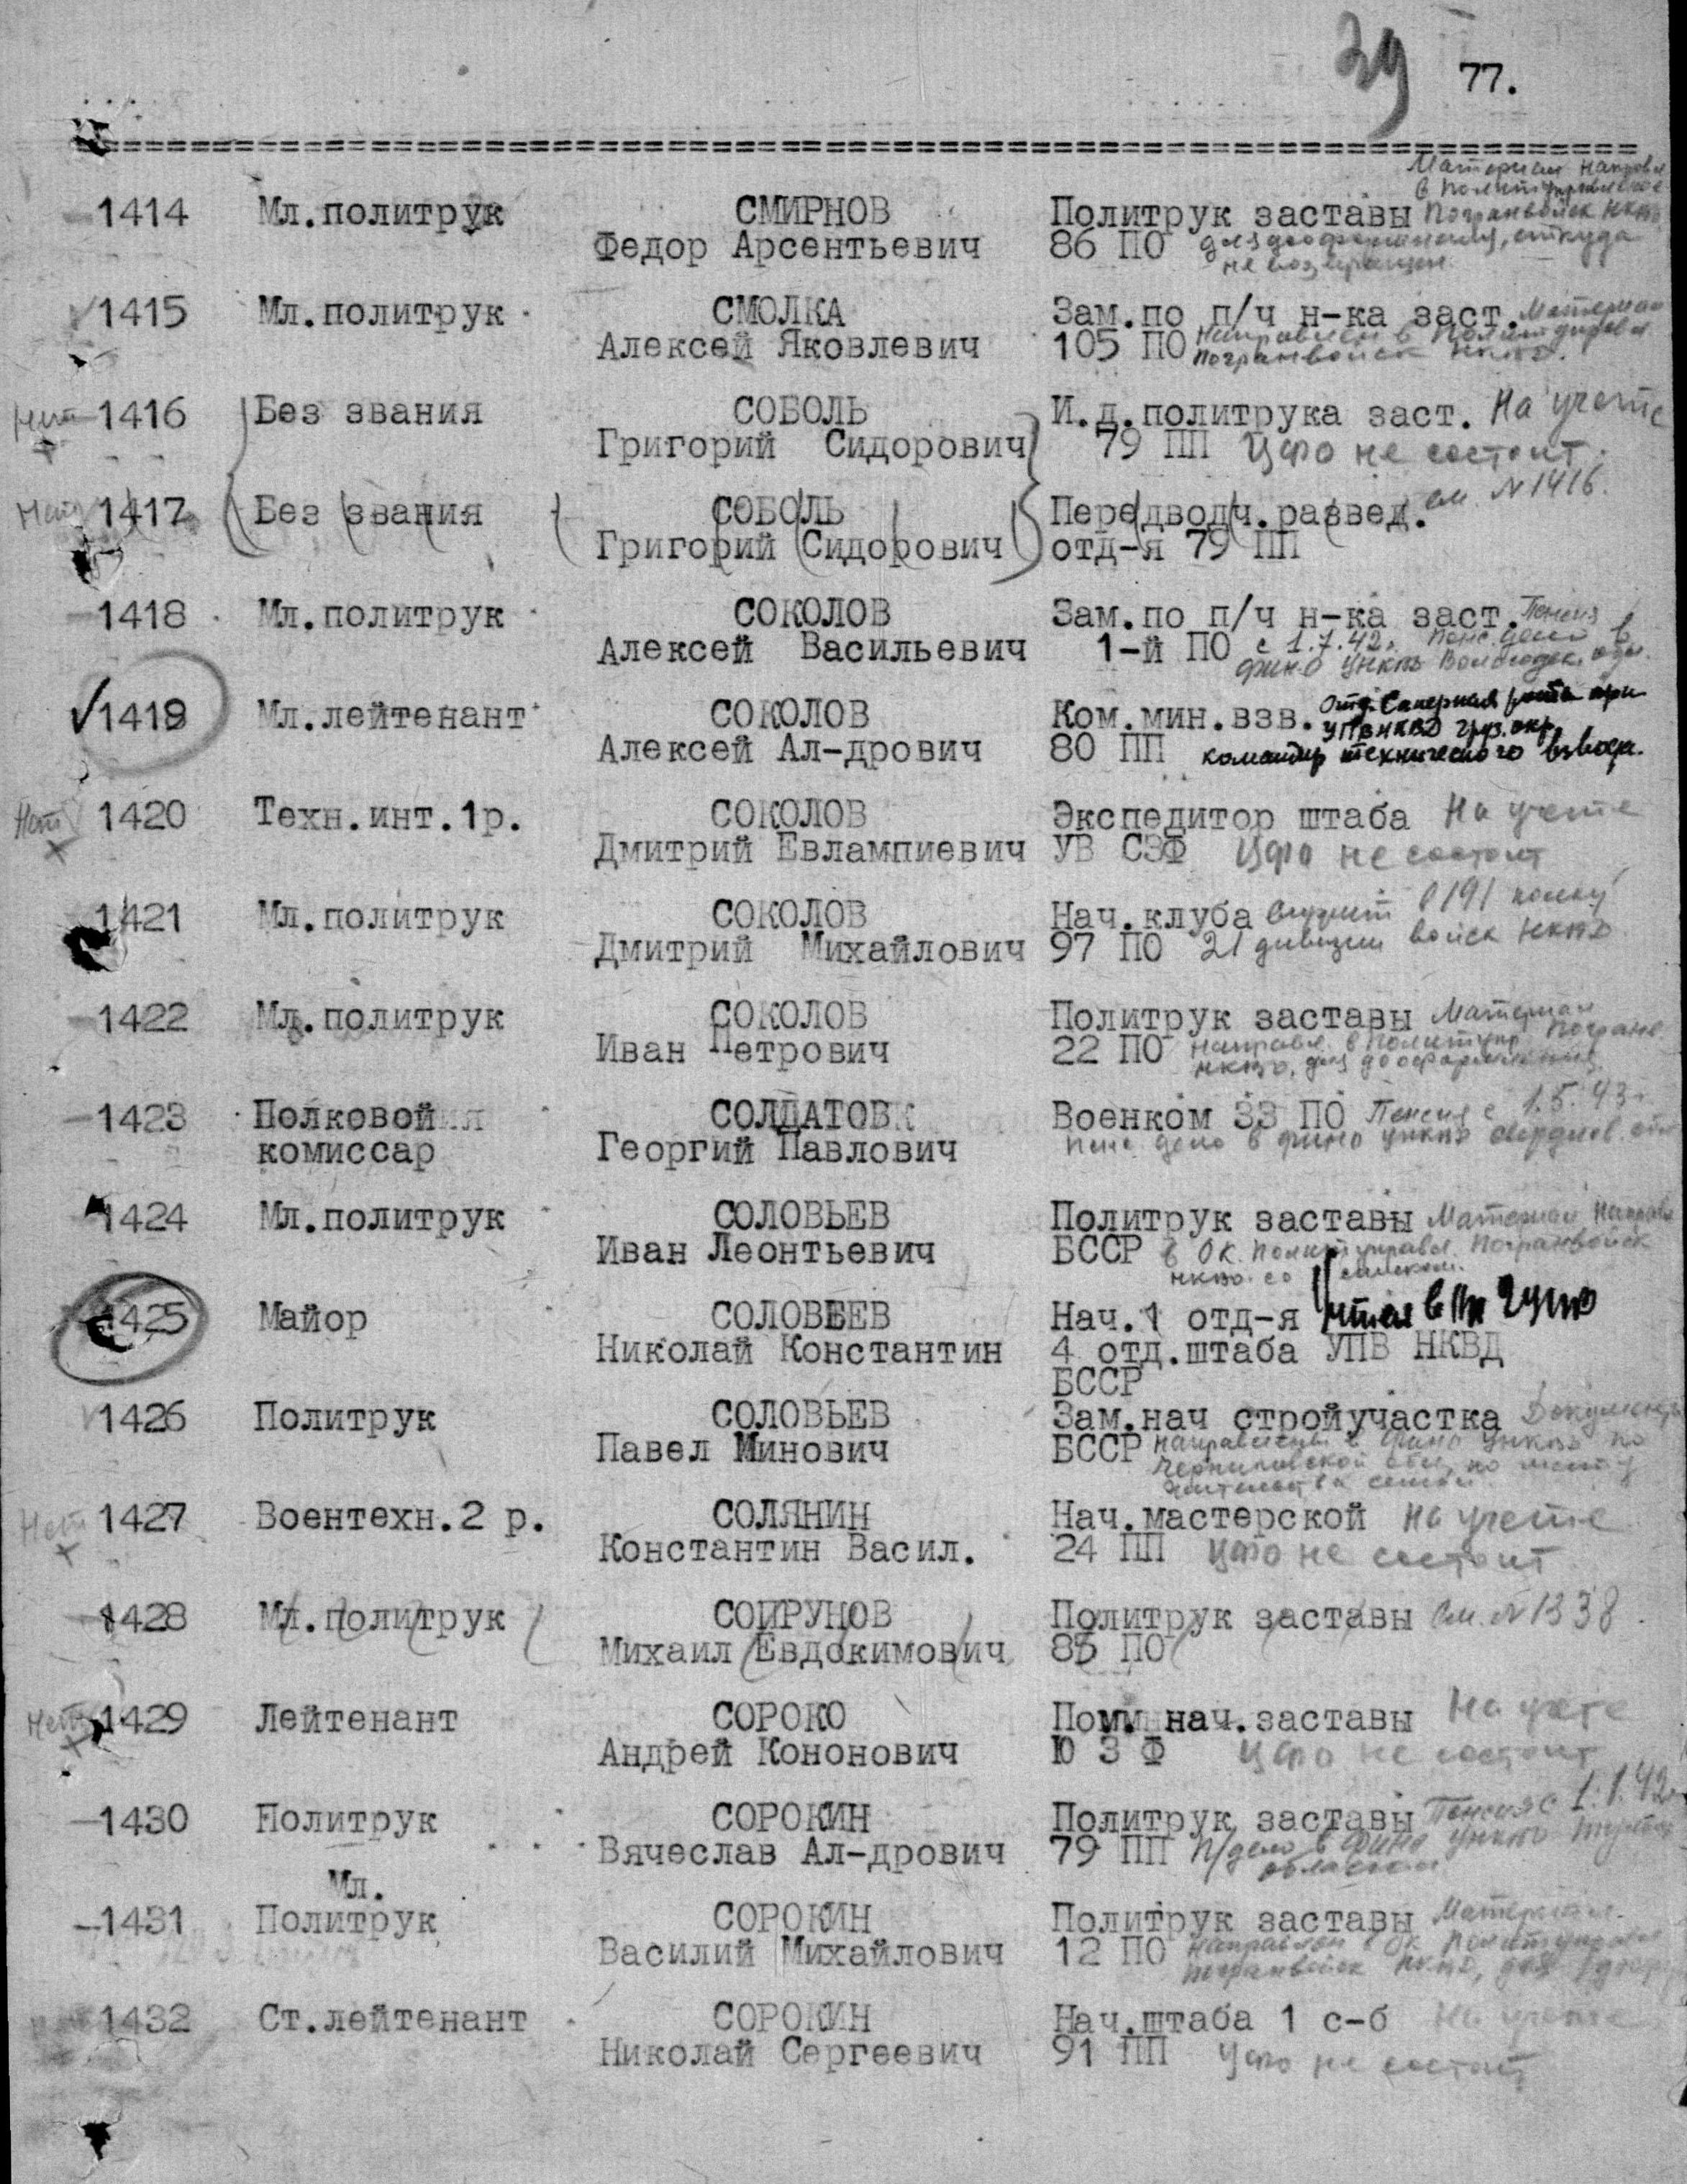 39 77.
Материал направл.
в Политуправление
1414 Мл.политрук СМИРНОВ Политрук заставы Погранвойск НКВД
Федор Арсентьевич 86 ПО для дооформления, откуда
не возвращен.
1415 Мл.политрук СМОЛКА Зам.по п/ч н-ка заст. Материал
Алексей Яковлевич 105 ПО Направлен в
Погранвойск НКВД.
Нет 1416 Без звания СОБОЛЬ И.д.политрука заст. На учете
Григорий Сидорович 79 ПП ЦФО не состоит.
Нет 1417 Без звания СОБОЛЬ Передводч.развед. см. N 1416.
Григорий Сидорович отд-я 79 ПП
1418 Мл.политрук СОКОЛОВ Зам.по п/ч н-ка заст. Пенсия
Алексей Васильевич 1-й ПО с 1.7.42г. пенс. дело в
фино УНКВД Вологодск. обл.
1419 Мл.лейтенант СОКОЛОВ Ком.мин.взв. Отд. Саперная рота при
УПВ НКВД Груз. окр.
Алексей Ал-дрович 80 ПП командир технического взвода.
Нет 1420 Техн.инт.1р. СОКОЛОВ Экспедитор штаба На учете
Дмитрий Евлампиевич УВ СЗФ ЦФО не состоит
1421 Мл.политрук СОКОЛОВ Нач.клуба Служит в 191 полку
Дмитрий Михайлович 97 ПО 21 дивизии войск НКВД
1422 Мл.политрук СОКОЛОВ Политрук заставы Материал
Иван Петрович 22 ПО направл. в Политупр. Погранв.
НКВД, для дооформления
1423 Полковой СОЛДАТОВ Военком 33 ПО Пенсия с 1.5.43г.
комиссар Георгий Павлович пенс дело в фино УНКВД свердлов. обл
1424 Мл.политрук СОЛОВЬЕВ Политрук заставы Материал Направл
Иван Леонтьевич БССР в ОК. Политуправл. Погранвойск
НКВД со списком.
1425 Майор СОЛОВЬЕВ Нач.1 отд-я
Николай Константин 4 отд.штаба УПВ НКВД
БССР
1426 Политрук СОЛОВЬЕВ Зам.нач стройучастка Документы
Павел Минович БССР направлены в Фино УНКВД по
Черниговской обл, по месту
жительства семьи
Нет 1427 Воентехн.2 р. СОЛЯНИН Нач.мастерской На учете
Константин Васил. 24 ПП ЦФО не состоит
1428 Мл.политрук СОПРУНОВ Политрук заставы См. N 1338.
Михаил Евдокимович 85 ПО
Нет 1429 Лейтенант СОРОКО Пом. нач.заставы На учете
Андрей Кононович Ю З Ф ЦФО не состоит
1430 Политрук СОРОКИН Политрук заставы Пенсия с 1.1.42г
Вячеслав Ал-дрович 79 ПП п/дело в Фино УНКВД
области
Мл.
1431 Политрук СОРОКИН Политрук заставы Материал
Василий Михайлович 12 ПО Направлен в ОК Политуправл
погранвойск НКВД, для
1432 Ст.лейтенант СОРОКИН Нач.штаба 1 с-б На учете
Николай Сергеевич 91 ПП ЦФО не состоит